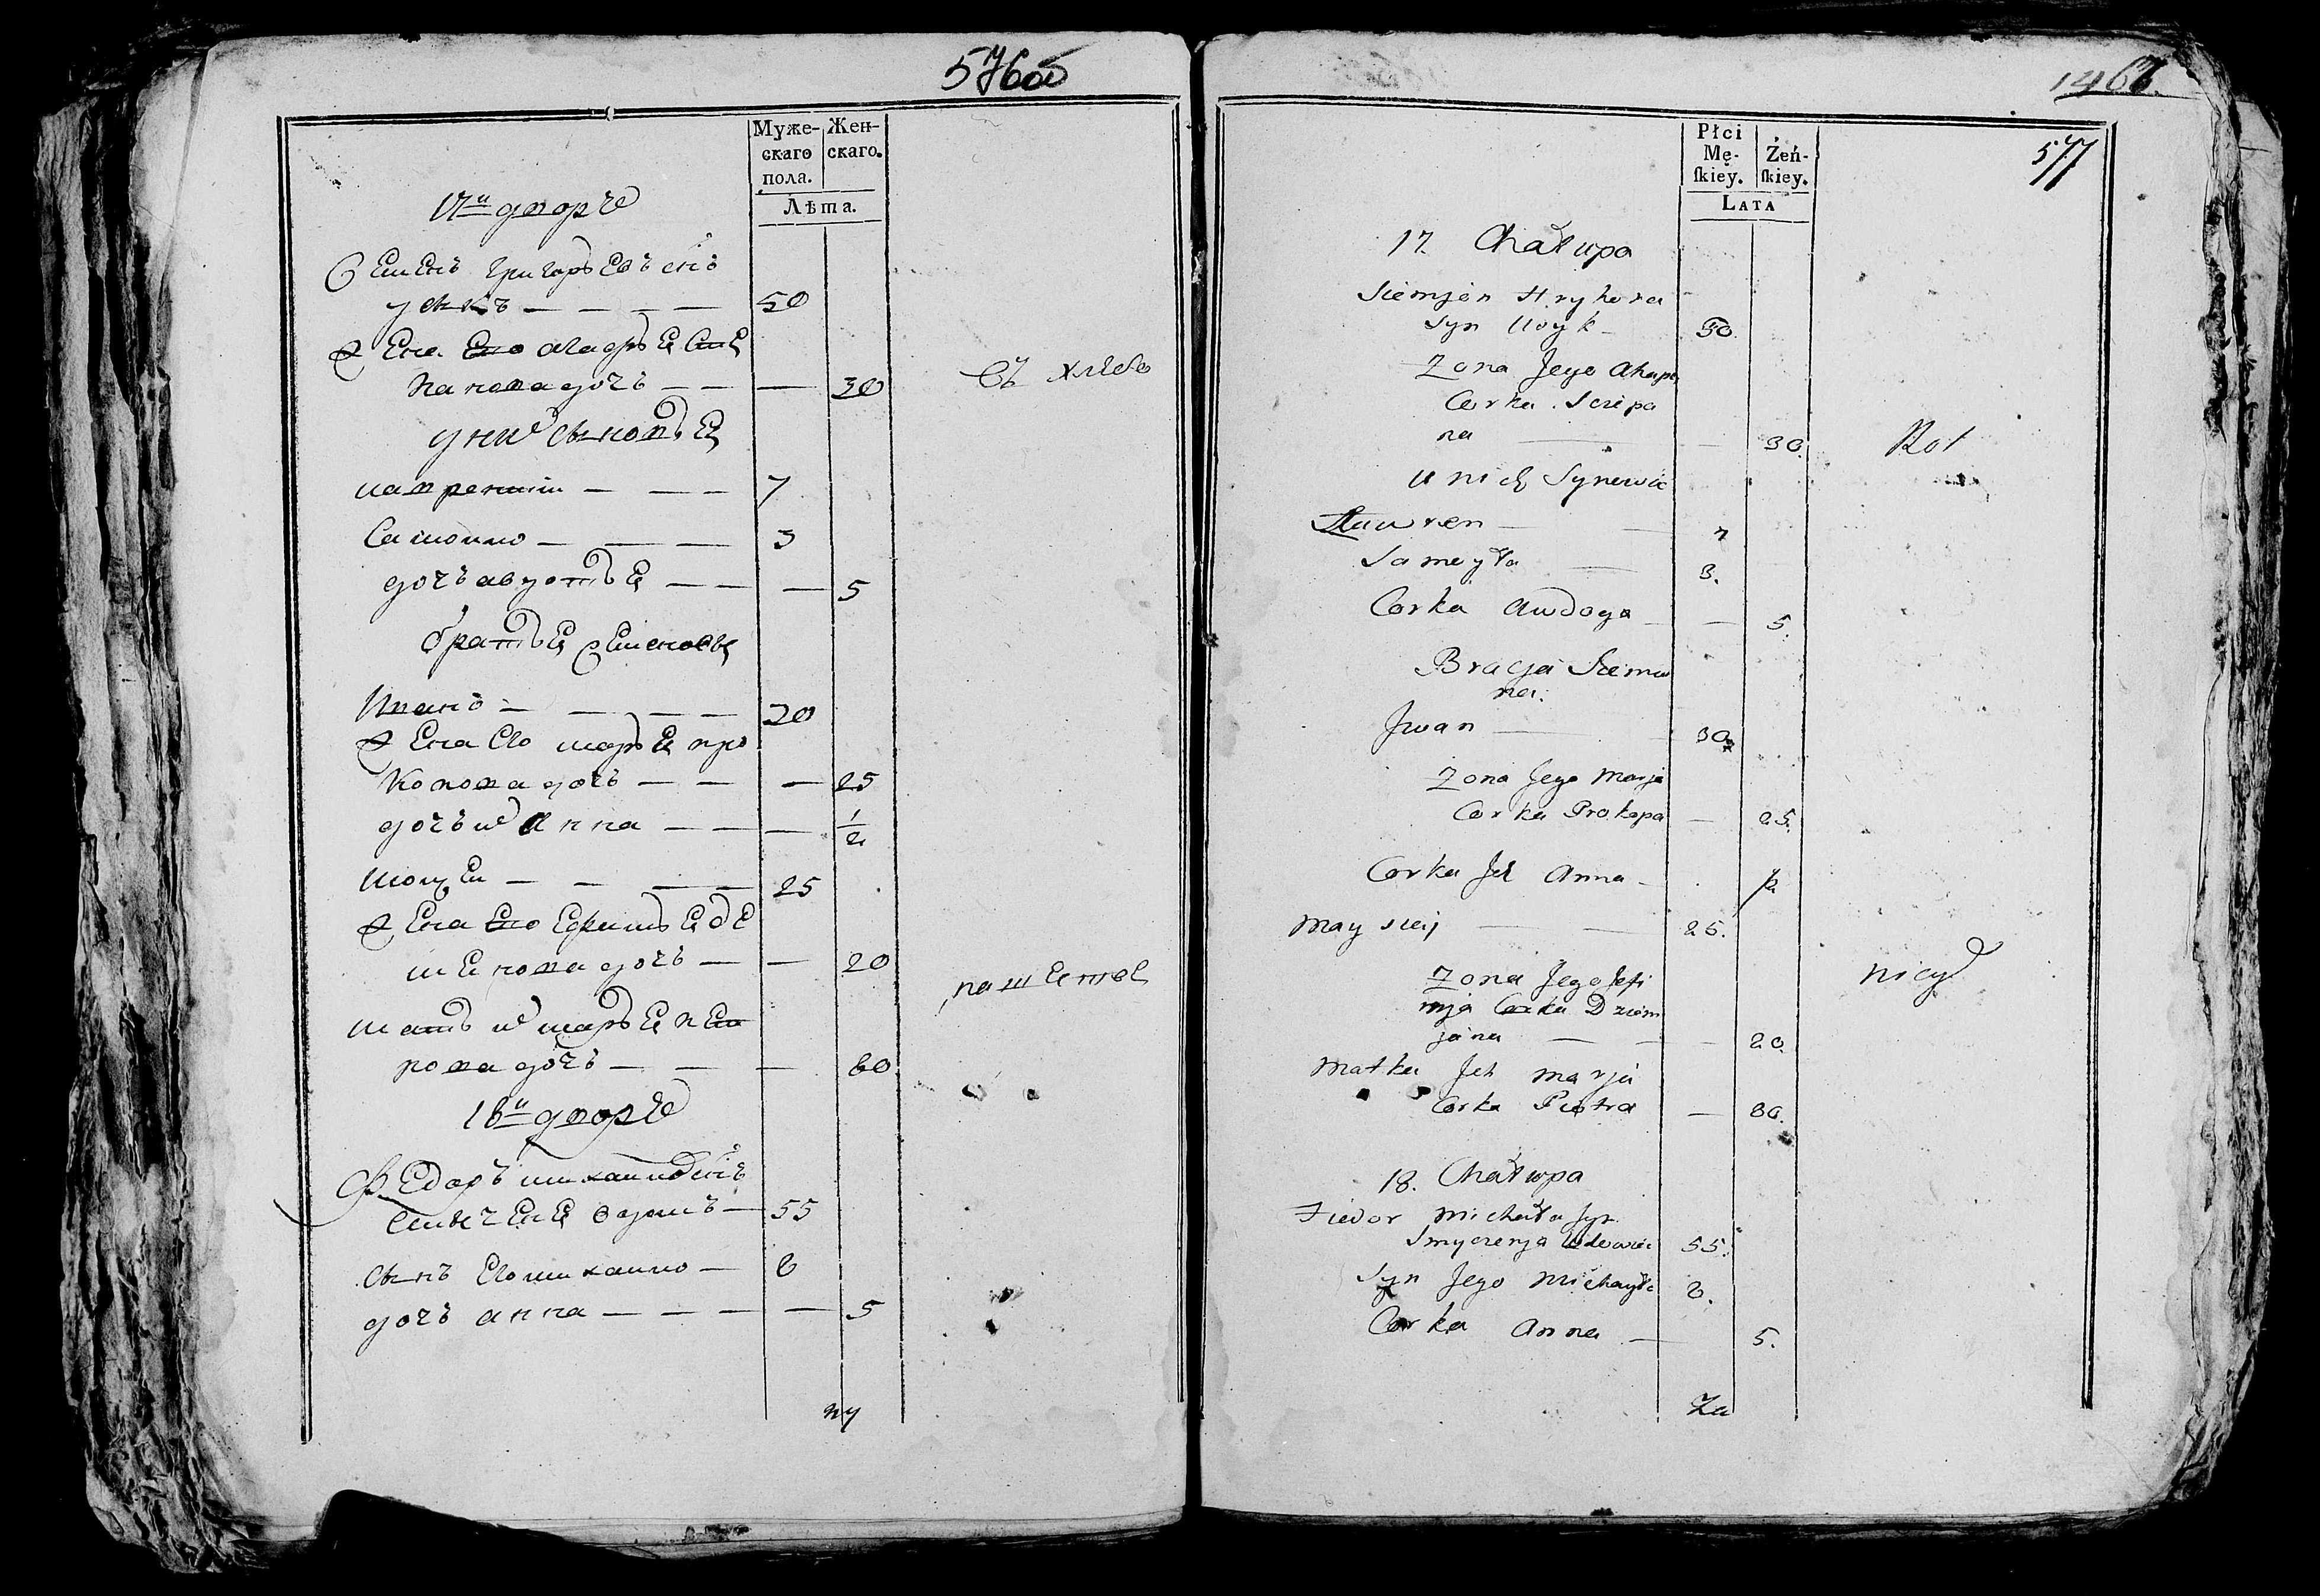 576об
Муже- Жен-
скаго скаго.
пола.
Лѣта.
17й дворъ
Семенъ григоръевъ снъ
50
Жена Его агафъя Сте
панова дочь — — — 30
у них сыновъя
лаврентий — — — 7
Самойло — — — 3
дочь авдотъя — — — 5
братъя семеновы
Иванъ — — — — 30
Жена Его маръя про
копова дочь — — — 25
дочь их анна — — — 1/2
мойсей — — — — 25
Жена Его Ефимъя де
мянова дочь — — 20
мать их маръя пет
рова дочь — — — 60
18й дворъ
Федоръ михайловъ снъ
вдовъ — 55
сынъ Его михайло — 8
дочь анна — — — — 5
1467.
577
Płci
Mę- Żeń-
ſkiey. ſkiey.
Lata
17. Chałupa
Siemjen Hryhora
Syn 50.
Zona Jego Ahapa
Corka Sciepa
na — — 30.
Rol
u nich Synowie
Ławren — — 7
Samoyła — 3.
Corka Awdoya — — 5.
Bracja Siemio
na.
Jwan — 30
Zona Jego Marja
Corka Prokopa — 25.
Corka Jch Anna — 1/2
Maysiej — — 25.
nicy
Zona Jego Jefi
mja Corka Dziem
jana — — — 20.
Matka Jch Marja
Corka Piotra — 60.
18. Chałupa
Fiedor Michała Syn
Smyczenja Wdowiec 55.
Syn Jego Michayło 8.
Corka Anna — 5.
Za